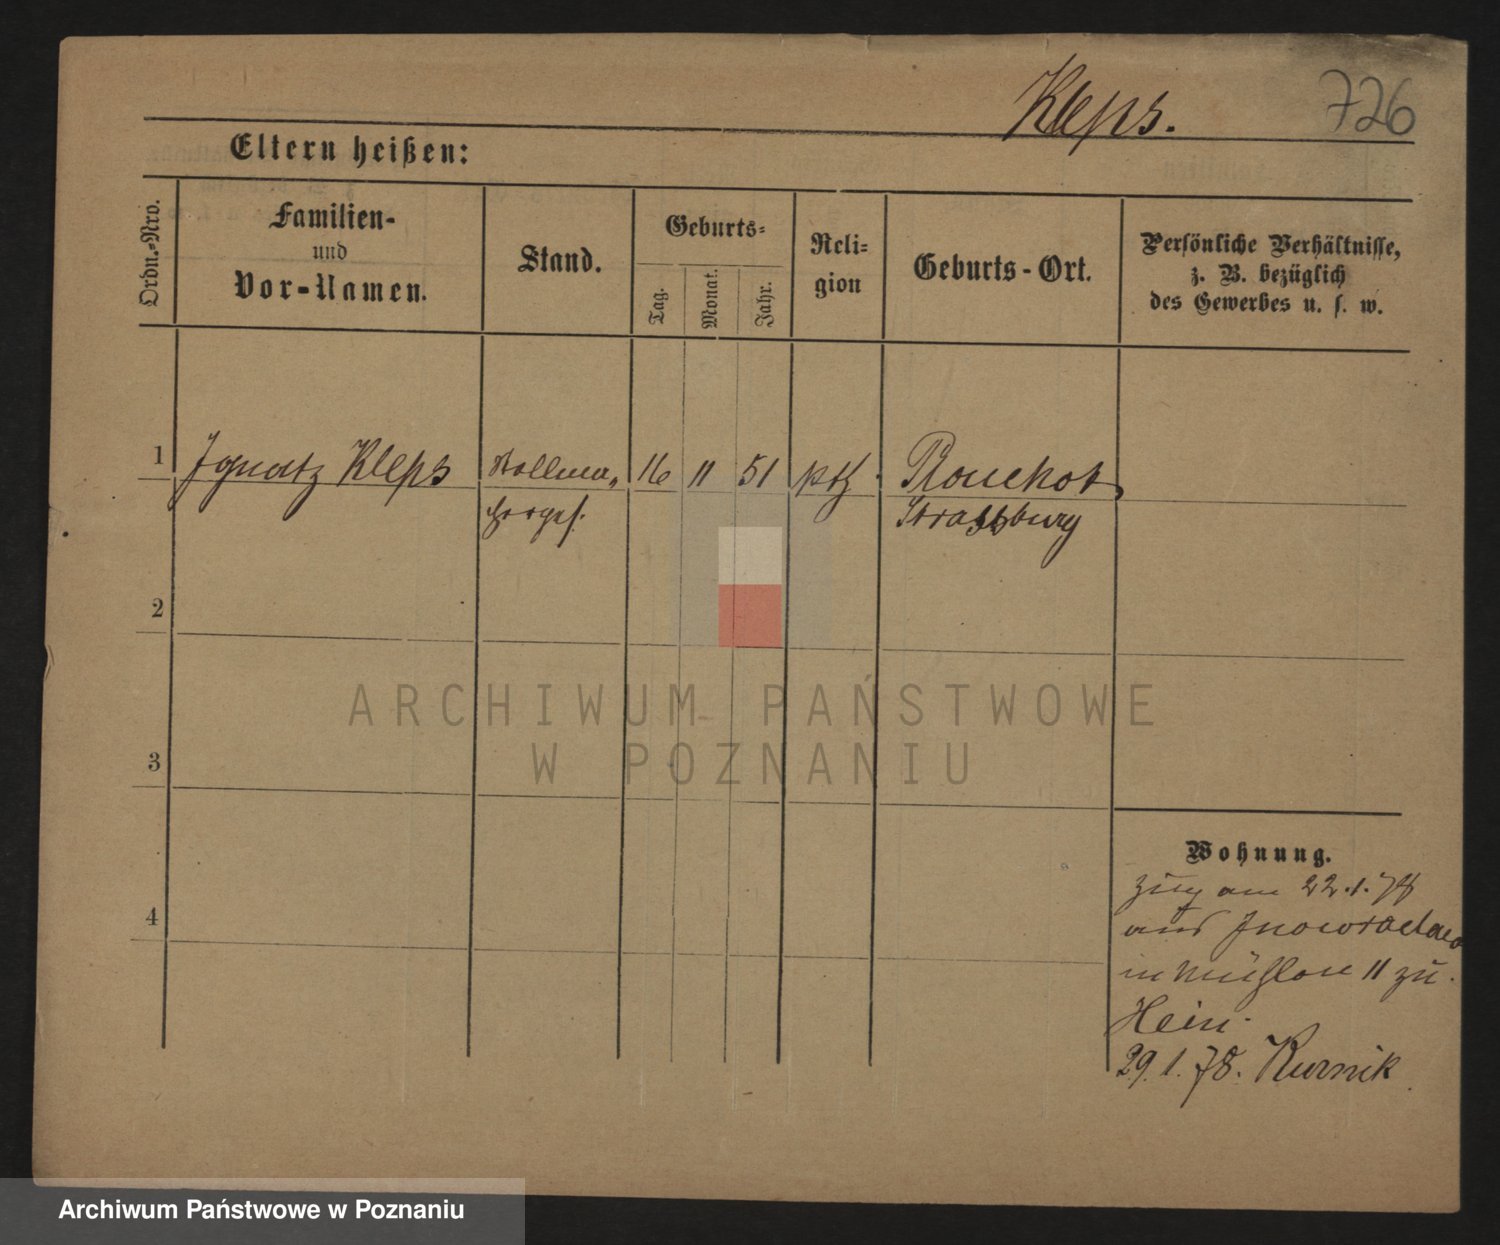 Kleps.
726
Eltern heißen:
Ordn.-Nro.
Familien-
und
Vor-Namen.
Stand.
Geburts-
Tag.
Monat.
Jahr.
Reli-
gion
Geburts-Ort.
Persönliche Verhältnisse,
z. B. bezüglich
des Gewerbes u. s. w.
1
Ignatz Kleps
16
11
51
kth
Strassburg
2
3
4
Wohnung.
Zuzg am 22.1.78
aus Inowraclaw
in Mühlen 11 zu
Hein
29.1.78. Kurnik
ARCHIWUM PAŃSTWOWE
W POZNANIU
Archiwum Państwowe w Poznaniu